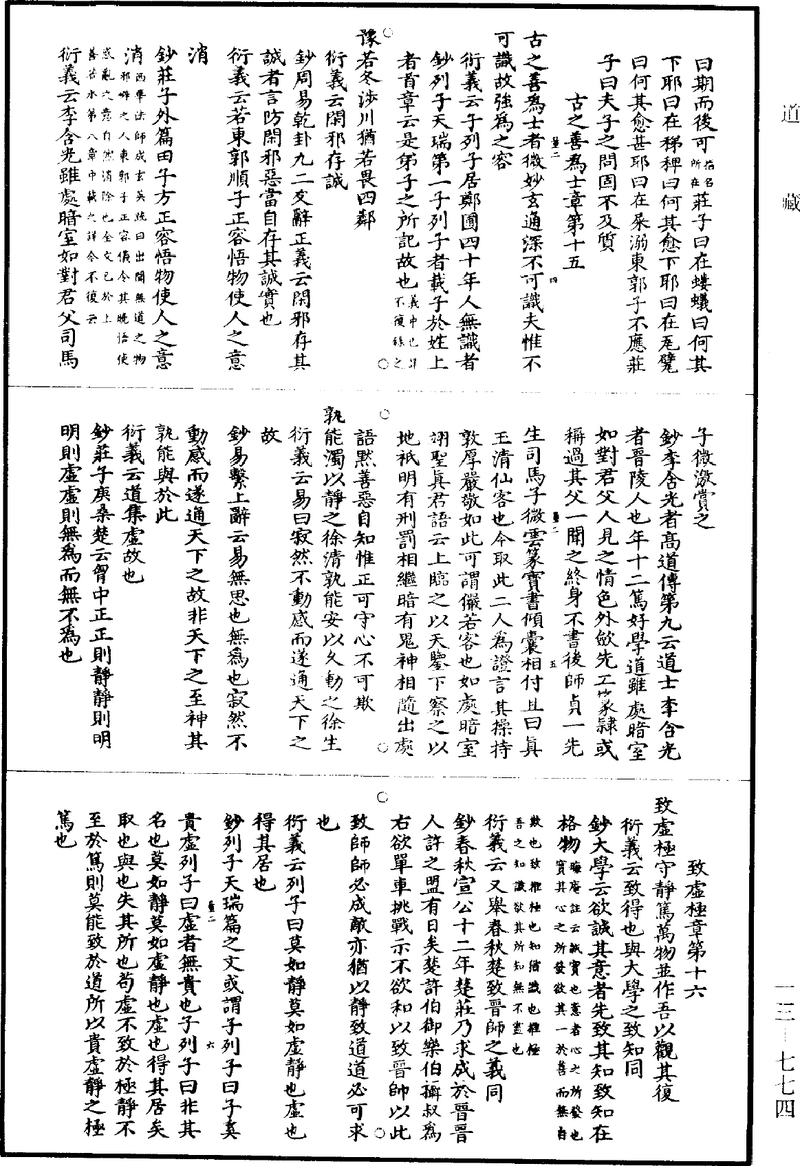 道藏
曰期而後可指名所在莊子曰在螻蟻曰何其
下耶曰在稊稗曰何其愈下耶曰在瓦甓
曰何其愈甚耶曰在屎溺東郭子不應莊
子曰夫子之問固不及質
古之善爲士章第十五
古之善爲士者微妙玄通深不可識夫惟不
可識故強爲之容
衍義云子列子居鄭圃四十年人無識者
鈔列子天瑞第一子列子者載子於姓上
者首章云是弟子之所記故也義中已詳不復錄之
豫若冬涉川猶若畏四鄰
衍義云閑邪存誠
鈔周易乾卦九二爻辭正義云閑邪存其
誠者言防閑邪惡當自存其誠實也
衍義云若東郭順子正容悟物使人之意
消
鈔莊子外篇田子方正容悟物使人之意
消西華法師成玄英疏曰出閒無道之物邪僻之人東郭子正容儀令其曉悟使惑亂之意自然消除也全文已於上善若水第八章中載之詳今不復云
衍義云李含光雖處暗室如對君父司馬
子微激賞之
鈔李含光者高道傳第九云道士李含光
者晉陵人也年十二篤好學道雖處暗室
如對君父人見之情色外斂先工篆隸或
稱過其父一聞之終身不書後師貞一先
生司馬子微雲篆寶書傾囊相付且曰眞
王清仙客也今取此二人爲證言其操持
敦厚嚴敬如此可謂儼若客也如處暗室
翊聖眞君語云上臨之以天鑒下察之以
地祇明有刑罰相繼暗有鬼神相隨出處
語默善惡自知惟正可守心不可欺
孰能濁以靜之徐清孰能安以久動之徐生
衍義云易曰寂然不動感而遂通天下之
故
鈔易繫上辭云易無思也無爲也寂然不
動感而遂通天下之故非天下之至神其
孰能與於此
衍義云道集虛故也
鈔莊子庚桑楚云胷中正正則靜靜則明
明則虛虛則無爲而無不爲也
致虛極章第十六
致虛極守靜篤萬物並作吾以觀其復
衍義云致得也與大學之致知同
鈔大學云欲誠其意者先致其知致知在
格物晦庵註云誠實也意者心之所發也實其心之所發欲其一於善而無自欺也致推極也知猶識也推極吾之知識欲其所知無不盡也
衍義云又舉春秋楚致晉師之義同
鈔春秋宣公十二年楚莊乃求成於晉晉
人許之盟有日矣楚許伯御樂伯攝叔爲
右欲單車挑戰示不欲和以致晉師以此
致師師必成敵亦猶以靜致道道必可求
也
衍義云列子曰莫如靜莫如虛靜也虛也
得其居也
鈔列子天瑞篇之文或謂子列子曰子奚
貴虛列子曰虛者無貴也子列子曰非其
名也莫如靜莫如虛靜也虛也得其居矣
取也與也失其所也苟虛不致於極靜不
至於篤則莫能致於道所以貴虛靜之極
篤也
一三—七七四